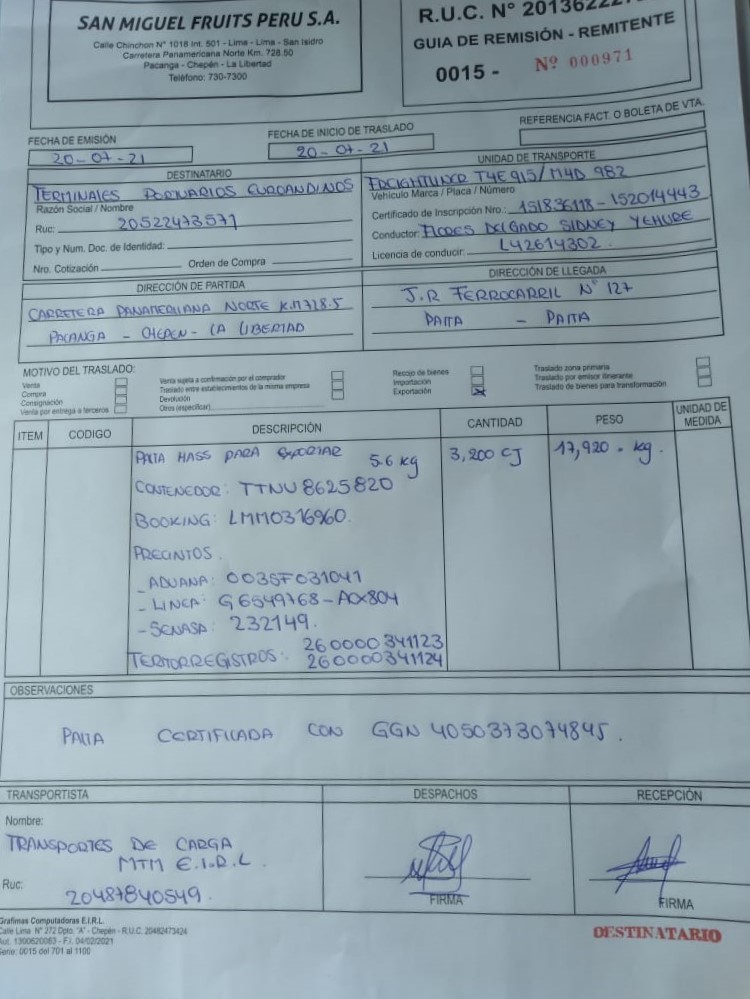 SAN MIGUEL FRUITS PERU S.A.
Calle Chinchon N° 1018 Int. 501 - Lima - Lima - San Isidro
Carretera Panamericana Norte Km. 728.50
Pacanga - Chepén - La Libertad
Teléfono: 730-7300
R.U.C. N° 2013622
GUIA DE REMISIÓN - REMITENTE
0015 - Nº 000971
FECHA DE EMISIÓN
20-07-21
FECHA DE INICIO DE TRASLADO
20-07-21
REFERENCIA FACT. O BOLETA DE VTA.
DESTINATARIO
TERMINALES PORTUARIOS EUROANDINOS
Razón Social / Nombre
Ruc: 20522473571
Tipo y Num. Doc. de Identidad:
Nro. Cotización Orden de Compra
UNIDAD DE TRANSPORTE
T4E915/M4D 982
Vehículo Marca / Placa / Número
Certificado de Inscripción Nro.: 151836118-152014443
Conductor: FLORES DELGADO SIDNEY YEHUDE
Licencia de conducir: L42614302.
DIRECCIÓN DE PARTIDA
CARRETERA PANAMERICANA NORTE K.M728.5
PACANGA - CHEPEN - LA LIBERTAD
DIRECCIÓN DE LLEGADA
J.R FERROCARRIL N° 127
PAITA - PAITA
MOTIVO DEL TRASLADO:
Venta
Compra
Consignación
Venta por entrega a terceros
Venta sujeta a confirmación por el comprador
Traslado entre establecimientos de la misma empresa
Devolución
Otros (especificar)
Recojo de bienes
Importación
Exportación x
Traslado zona primaria
Traslado por emisor itinerante
Traslado de bienes para transformación
ITEM CODIGO DESCRIPCIÓN CANTIDAD PESO UNIDAD DE MEDIDA
PALTA HASS PARA EXPORTAR 5.6 kg 3,200 CJ 17,920. kg.
CONTENEDOR: TTNU 8625820
BOOKING: LMM0316960.
PRECINTOS.
- ADUANA: 0035F031041
- LINEA: G6549768-AOX804
- SENASA: 232149.
TERMORREGISTROS: 260000341123
260000341124
OBSERVACIONES
PALTA CERTIFICADA CON GGN 4050373074845.
TRANSPORTISTA
Nombre:
TRANSPORTES DE CARGA
MTM E.I.R.L.
Ruc: 20487840549.
DESPACHOS
FIRMA
RECEPCIÓN
FIRMA
Grafimas Computadoras E.I.R.L.
Calle Lima N° 272 Dpto. "A" - Chepén - R.U.C. 20482473424
Aut. 1300620063 - F.I. 04/02/2021
Serie: 0015 del 701 al 1100
DESTINATARIO